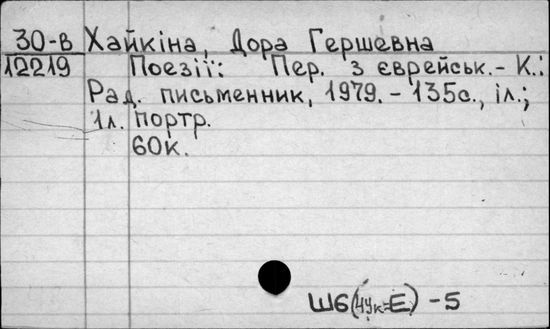 30-в Хайкіна, Дора Гершевна
12219 Поезії: Пер. з єврейськ. - К.:
Рад. письменник, 1979. - 135с., іл.;
1л. портр.
60к.
Ш6(4Ук=Е) - 5